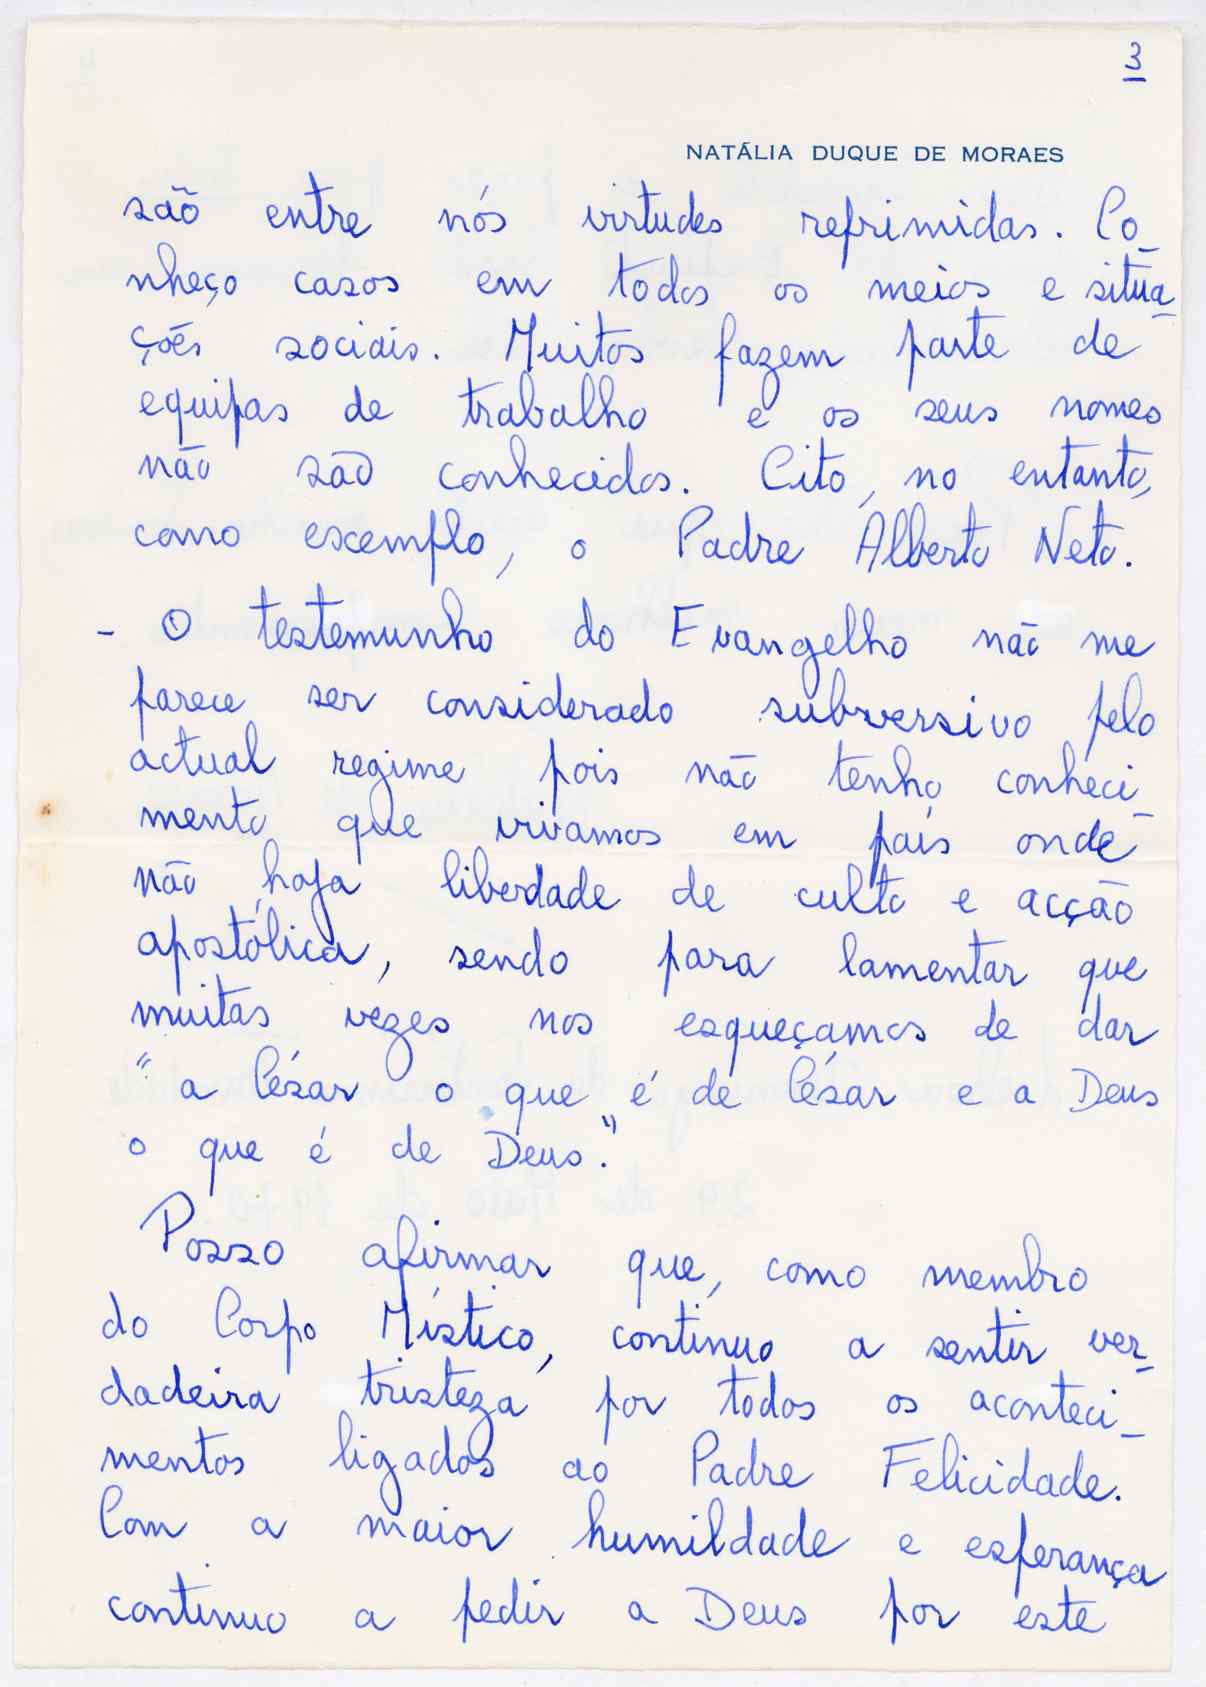 3
NATÁLIA DUQUE DE MORAES
são entre nós virtudes reprimidas. Co_
nheço casos em todos os meios e situa_
ções sociais. Muitos fazem parte de
equipas de trabalho e os seus nomes
não são conhecidos. Cito, no entanto,
como exemplo, o Padre Alberto Neto.
- O testemunho do Evangelho não me
parece ser considerado subversivo pelo
actual regime pois não tenho conheci_
mento que vivamos em país onde
não haja liberdade de culto e acção
apostólica, sendo para lamentar que
muitas vezes nos esqueçamos de dar
"a César o que é de César e a Deus
o que é de Deus."
Posso afirmar que, como membro
do Corpo Místico, continuo a sentir ver_
dadeira tristeza por todos os aconteci_
mentos ligados ao Padre Felicidade.
Com a maior humildade e esperança
continuo a pedir a Deus por este